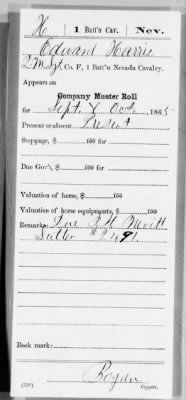 H 1 Batt'n Cav. Nev.
Edward Harris
Q M Sgt, Co. F, 1 Batt'n Nevada Cavalry.
Appears on
Company Muster Roll
for Sept & Oct, 1865
Present or absent Present
Stoppage, $ 100 for
Due Gov't, $ 100 for
Valuation of horse, $ 100
Valuation of horse equipments, $ 100
Remarks: Due
Sutler $24
Book mark:
(358) Copyist.